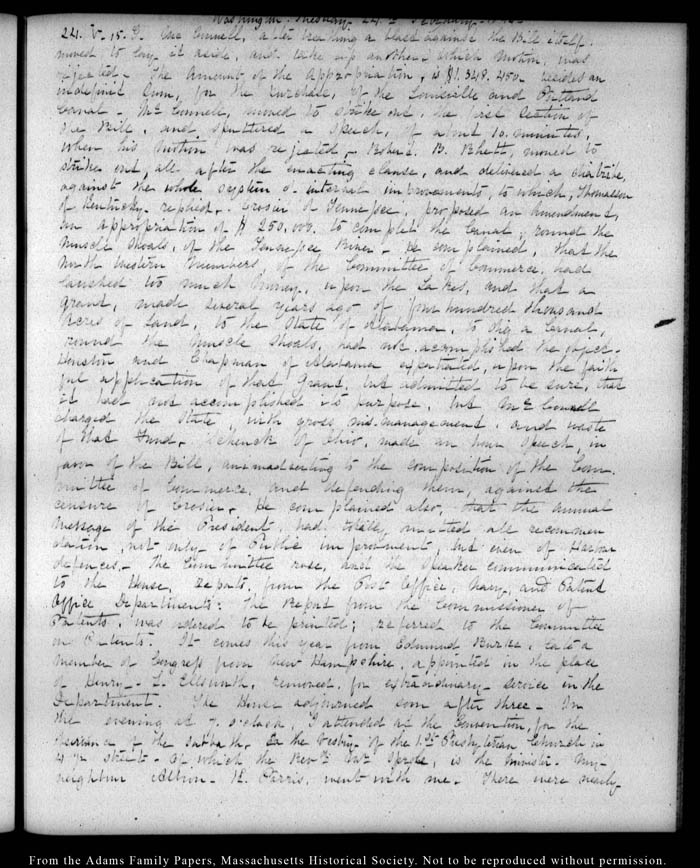 Washington. Tuesday 24.
24. V. 15. T. Connell, after making a against the Bill itself
moved to lay it aside, and take up another which motion, was
rejected. The Amount of the Appropriation, is $1.348.450. besides an
indefinite sum, for the purchase, of the Louisville and Portland
Canal. McConnell, moved to strike out, the first section of
the Bill, and sputtered a Speech, of about 10. minutes,
when his motion was rejected. Robert. B. Rhett, moved to
strike out, all after the enacting clause, and delivered a diatribe,
against the whole system of internal improvements, to which, Thomasson
of Kentucky replied. Crozier of Tennessee, proposed an Amendment,
an appropriation of $250,000. to complete the Canal, round the
Muscle Shoals, of the Tennessee River. He complained, that the
North Western Members, of the Committee of Commerce, had
lavished too much money, upon the Lakes, and that a
grant, made several years ago of four hundred thousand
Acres of Land, to the State of Alabama, to dig a Canal,
round the Muscle Shoals, had not accomplished the object.
Houston and Chapman of Alabama expatiated, upon the faith
ful application of that Grant, but admitted to be sure, that
it had not accomplished its purpose, but McConnell
charged the State, with gross, mis-management, and waste
of that Fund. Schenck of Ohio, made an hour Speech, in
favor of the Bill, animadverting to the composition of the Com
mittee of Commerce, and defending them, against the
censure of Crozier. He complained also, that the annual
Message of the President, had totally omitted all recommen
dation, not only of Public improvement, but even of Harbour
defences. The Committee rose, and the Speaker communicated
to the House, Reports, from the Post Office, Navy, and Patent
Office Departments: The Report from the Commissioner of
Patents, was ordered to be printed; referred to the Committee
on Patents. It comes this year from Edmund Burke, late a
Member of Congress from New Hampshire, appointed in the place
of Henry. L. Ellsworth, removed, for extraordinary service in the
Department. The House adjourned soon after three. In
the evening at 7. o'clock, I attended at the Convention, for the
observance of the Sabbath. In the Vestry of the 1st Presbyterian Church in
4 1/2 street. Of which the Revd. Mr. Sprole, is the Minister. My
neighbour Albion. K. Parris, went with me. There were nearly
From the Adams Family Papers, Massachusetts Historical Society. Not to be reproduced without permission.